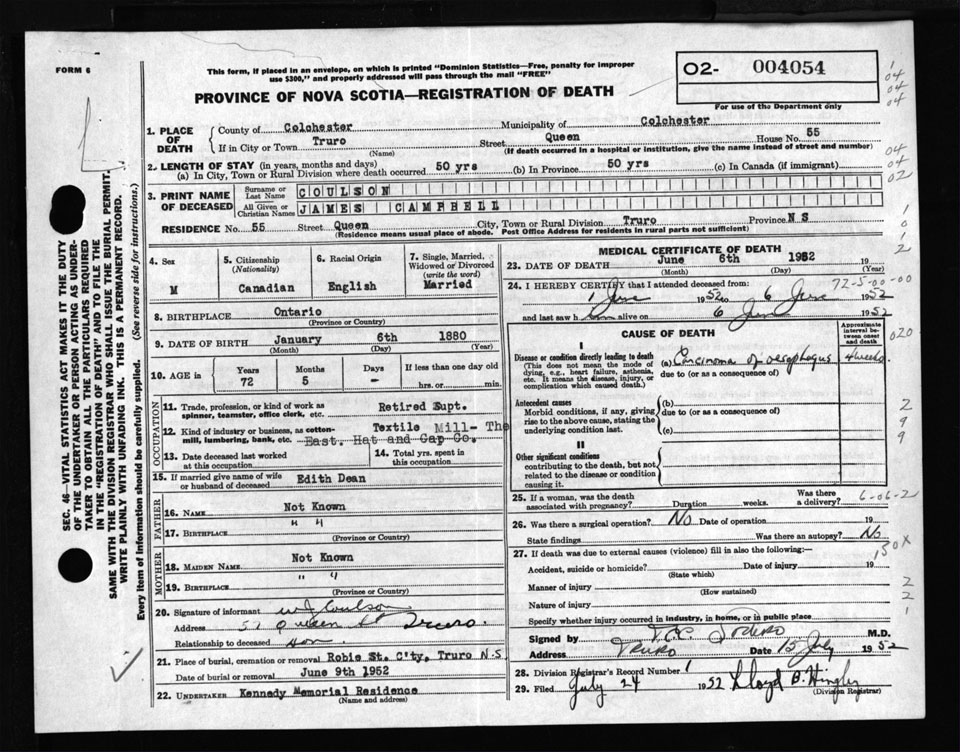 FORM 6
This form, if placed in an envelope, on which is printed "Dominion Statistics—Free, penalty for improper
use $300," and properly addressed will pass through the mail "FREE"
PROVINCE OF NOVA SCOTIA—REGISTRATION OF DEATH
O2- 004054
For use of the Department only
1. PLACE OF DEATH
County of Colchester Municipality of Colchester
If in City or Town Truro Street Queen House No. 55
(Name) (If death occurred in a hospital or institution, give the name instead of street and number)
2. LENGTH OF STAY (in years, months and days)
(a) In City, Town or Rural Division where death occurred 50 yrs (b) In Province 50 yrs (c) In Canada (if immigrant)
3. PRINT NAME OF DECEASED
Surname or Last Name COULSON
All Given or Christian Names JAMES CAMPBELL
RESIDENCE No. 55 Street Queen City, Town or Rural Division Truro Province N S
(Residence means usual place of abode. Post Office Address for residents in rural parts not sufficient)
4. Sex
M
5. Citizenship
(Nationality)
Canadian
6. Racial Origin
English
7. Single, Married, Widowed or Divorced
(write the word)
Married
8. BIRTHPLACE Ontario
(Province or Country)
9. DATE OF BIRTH January 6th 1880
(Month) (Day) (Year)
10. AGE in
Years Months Days If less than one day old
72 5 - hrs. or min.
OCCUPATION
11. Trade, profession, or kind of work as
spinner, teamster, office clerk, etc. Retired Supt.
12. Kind of industry or business, as cotton-
mill, lumbering, bank, etc. Textile Mill- The
East. Hat and Cap Co.
13. Date deceased last worked
at this occupation
14. Total yrs. spent in
this occupation
15. If married give name of wife
or husband of deceased Edith Dean
FATHER
16. NAME Not Known
17. BIRTHPLACE " "
(Province or Country)
MOTHER
18. MAIDEN NAME Not Known
19. BIRTHPLACE " "
(Province or Country)
20. Signature of informant Coulson
Address Queen St Truro.
Relationship to deceased son.
21. Place of burial, cremation or removal Robie St. C'ty, Truro N.S
Date of burial or removal June 9th 1952
22. UNDERTAKER Kennedy Memorial Residence
(Name and address)
MEDICAL CERTIFICATE OF DEATH
23. DATE OF DEATH June 6th 1952 19
(Month) (Day) (Year)
72-5-00-00
24. I HEREBY CERTIFY that I attended deceased from:
1 June 1952 to 6 June 1952
and last saw h alive on 6 June 1952
CAUSE OF DEATH
Approximate interval between onset and death
I
Disease or condition directly leading to death
(This does not mean the mode of dying, e.g., heart failure, asthenia, etc. It means the disease, injury, or complication which caused death.)
(a) Carcinoma of oesophagus 4 weeks
due to (or as a consequence of)
Antecedent causes
Morbid conditions, if any, giving rise to the above cause, stating the underlying condition last.
(b)
due to (or as a consequence of)
(c)
II
Other significant conditions
contributing to the death, but not related to the disease or condition causing it.
25. If a woman, was the death
associated with pregnancy? Duration weeks. Was there a delivery?
6-06-2
26. Was there a surgical operation? No Date of operation 19
State findings Was there an autopsy? No
27. If death was due to external causes (violence) fill in also the following:—
Accident, suicide or homicide? Date of injury 19
(State which)
Manner of injury
(How sustained)
Nature of injury
Specify whether injury occurred in industry, in home, or in public place
Signed by M.D.
Address Truro Date 15 July 1952
28. Division Registrar's Record Number 1
29. Filed July 24 1952 Lloyd B. Hingley
(Division Registrar)
SEC. 46—VITAL STATISTICS ACT MAKES IT THE DUTY
OF THE UNDERTAKER OR PERSON ACTING AS UNDER-
TAKER TO OBTAIN ALL THE PARTICULARS REQUIRED
IN THE "REGISTRATION OF DEATH" AND TO FILE THE
SAME WITH THE DIVISION REGISTRAR WHO SHALL ISSUE THE BURIAL PERMIT.
WRITE PLAINLY WITH UNFADING INK. THIS IS A PERMANENT RECORD.
Every item of information should be carefully supplied. (See reverse side for instructions.)
1
04
04
04
04
02
1
0
1
2
020
2
9
9
150X
2
2
1